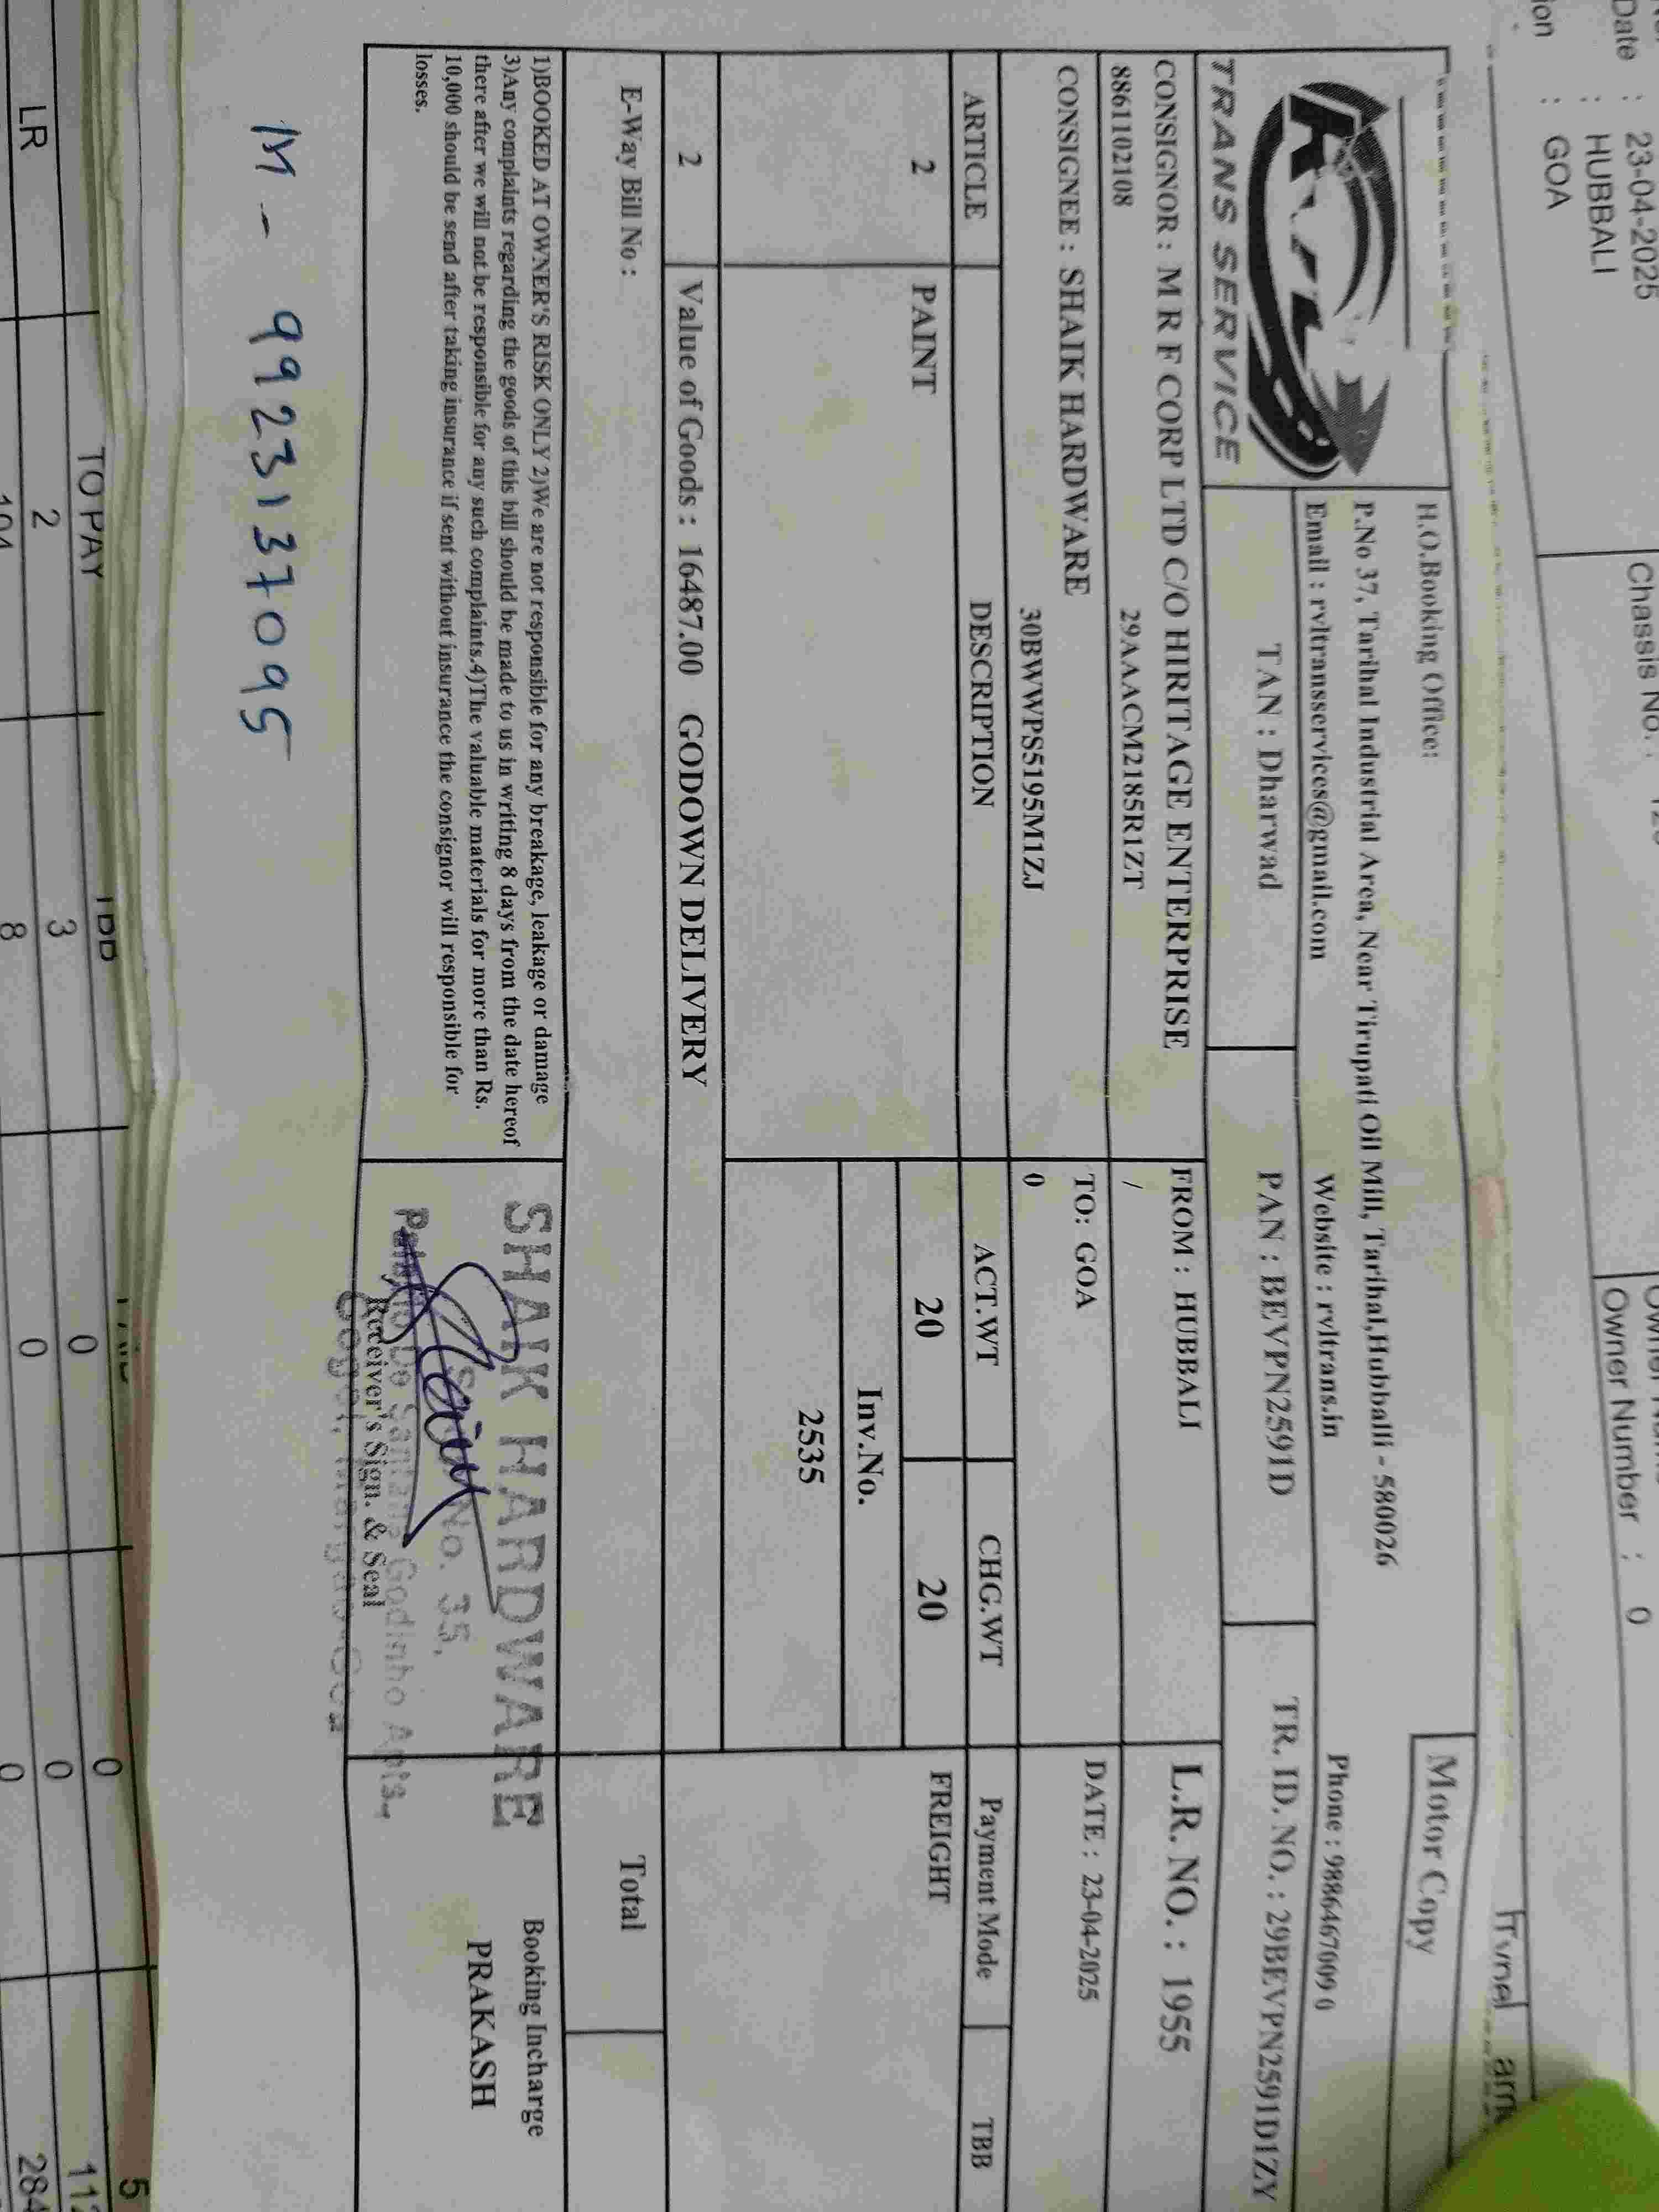 Date : 23-04-2025
: HUBBALI
: GOA
Chassis No. :
Owner Number : 0
Motor Copy
TRANS SERVICE
H.O.Booking Office:
P.No 37, Tarihal Industrial Area, Near Tirupati Oil Mill, Tarihal,Hubballi - 580026
Email : rvltransservices@gmail.com Website : rvltrans.in Phone : 9886467099 0
TAN : Dharwad PAN : BEVPN2591D TR. ID. NO. : 29BEVPN2591D1ZY
CONSIGNOR : M R F CORP LTD C/O HIRITAGE ENTERPRISE FROM : HUBBALI L.R. NO. : 1955
8861102108 29AAACM2185R1ZT /
CONSIGNEE : SHAIK HARDWARE TO: GOA DATE : 23-04-2025
30BWWPS5195M1ZJ 0
ARTICLE DESCRIPTION ACT.WT CHG.WT Payment Mode TBB
2 PAINT 20 20 FREIGHT
Inv.No.
2535
2 Value of Goods : 16487.00 GODOWN DELIVERY
E-Way Bill No : Total
1)BOOKED AT OWNER'S RISK ONLY 2)We are not responsible for any breakage, leakage or damage
3)Any complaints regarding the goods of this bill should be made to us in writing 8 days from the date hereof
there after we will not be responsible for any such complaints.4)The valuable materials for more than Rs.
10,000 should be send after taking insurance if sent without insurance the consignor will responsible for
losses.
SHAIK HARDWARE
No. 35,
Godinho Apts.,
Receiver's Sign. & Seal
Booking Incharge
PRAKASH
M - 9923137095
TO PAY
LR 2 3 0 0
8 0 0